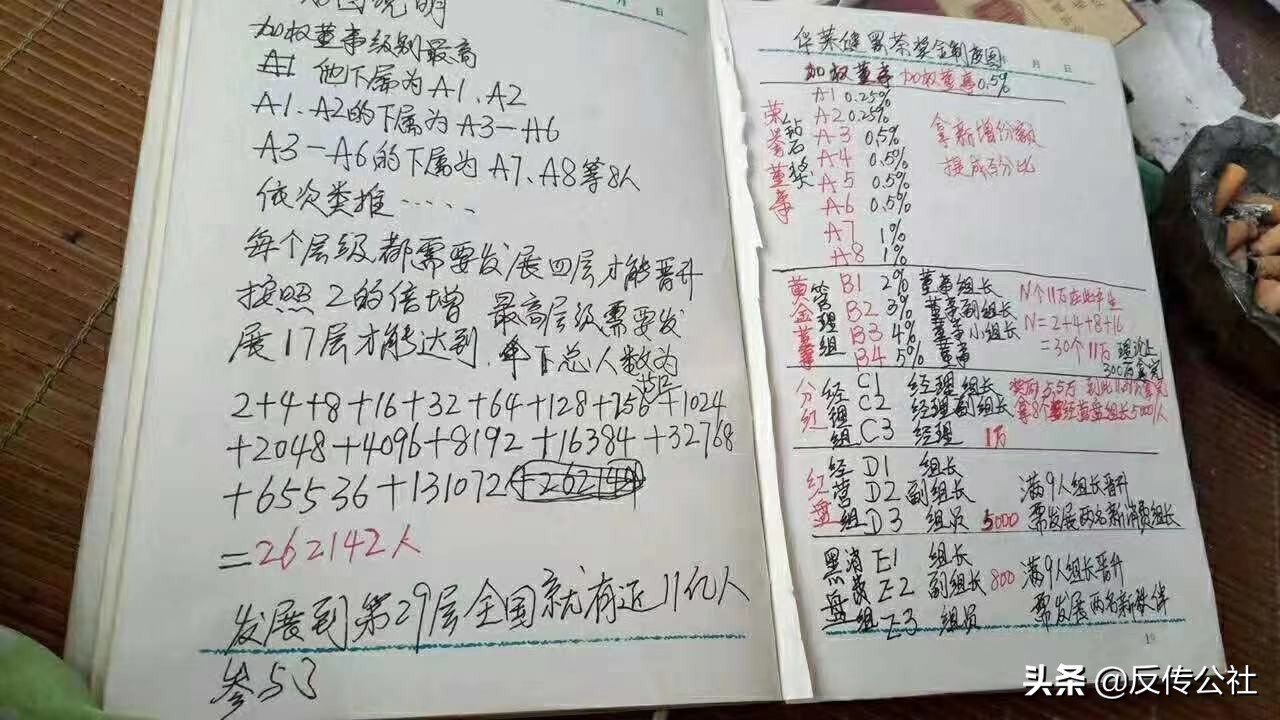 如图说明
加权董事级别最高
他下属为A1、A2
A1、A2的下属为A3—A6
A3—A6的下属为A7、A8等8人
依次类推······
每个层级都需要发展四层才能晋升
按照2的倍增 最高层级需要发
展17层才能达到. 伞下总人数为
2+4+8+16+32+64+128+256+512+1024
+2048+4096+8192+16384+32768
+65536+131072
=262142人
发展到第29层全国就有近11亿人
参与了
月 日
华莱健黑茶奖金制度图
月 日
加权董事 加权董事0.5%
荣誉董事
钻石奖
A1 0.25%
A2 0.25%
A3 0.5%
A4 0.5%
A5 0.5%
A6 0.5%
A7 1%
A8 1%
拿新增份额
提成百分比
黄金董事
管理组
B1 2% 董事组长
B2 3% 董事副组长
B3 4% 董事小组长
B4 5% 董事
N个11万
N=2+4+8+16
=30个11万 理论上
300万
分红
经理组
C1 经理组长
C2 经理副组长
C3 经理 1万
奖励5.5万
组长5000/人
红盘
经营组
D1 组长
D2 副组长
D3 组员 5000
满9人组长晋升
需发展两名新消费组长
黑盘
消费组
E1 组长
E2 副组长 800
E3 组员
满9人组长晋升
需发展两名新伙伴
10
头条 @反传公社